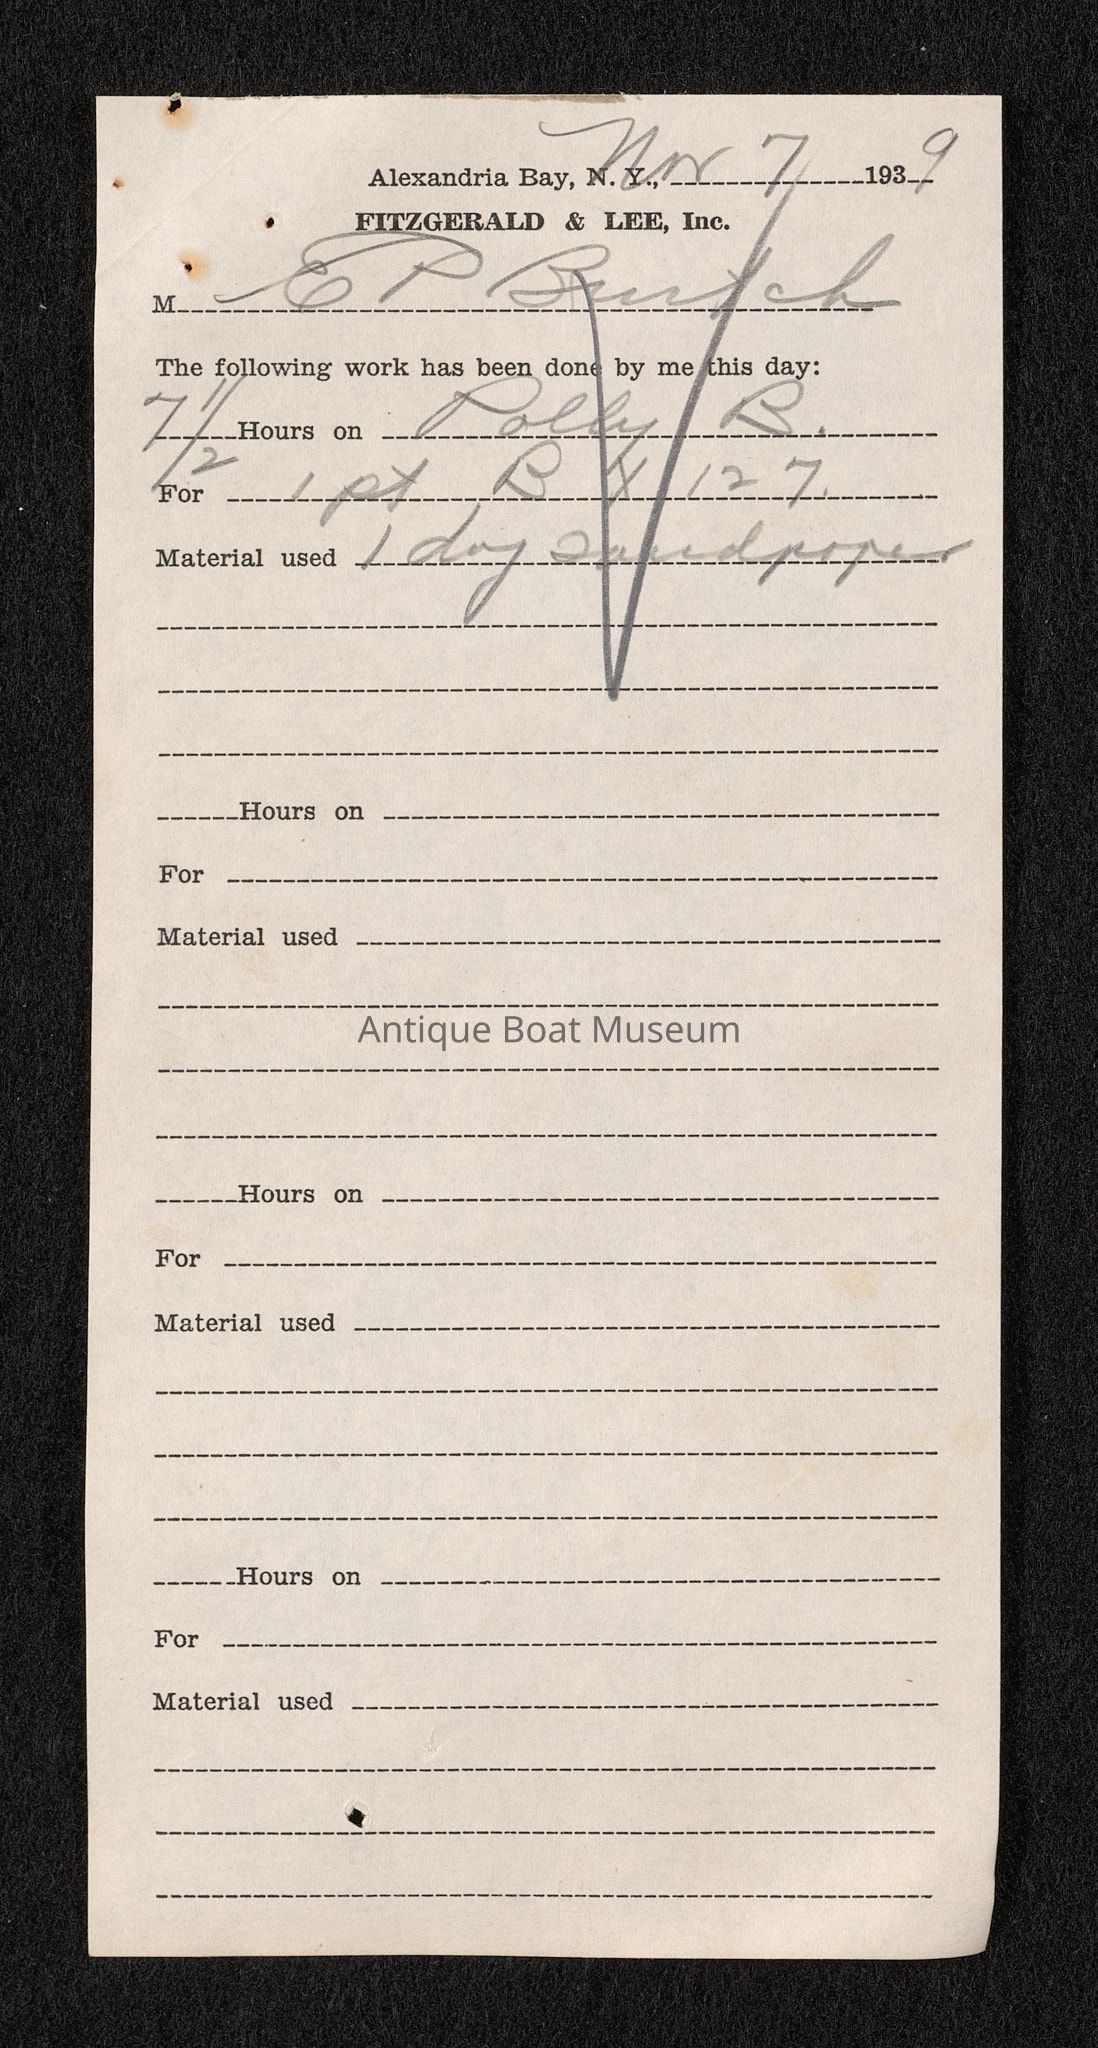 Alexandria Bay, N. Y., Nov 7 1939
FITZGERALD & LEE, Inc.
M E P Burtch
The following work has been done by me this day:
7 1/2 Hours on Polly B.
For 1 pt B X 127.
Material used 1 doz sandpaper
Hours on
For
Material used
Antique Boat Museum
Hours on
For
Material used
Hours on
For
Material used